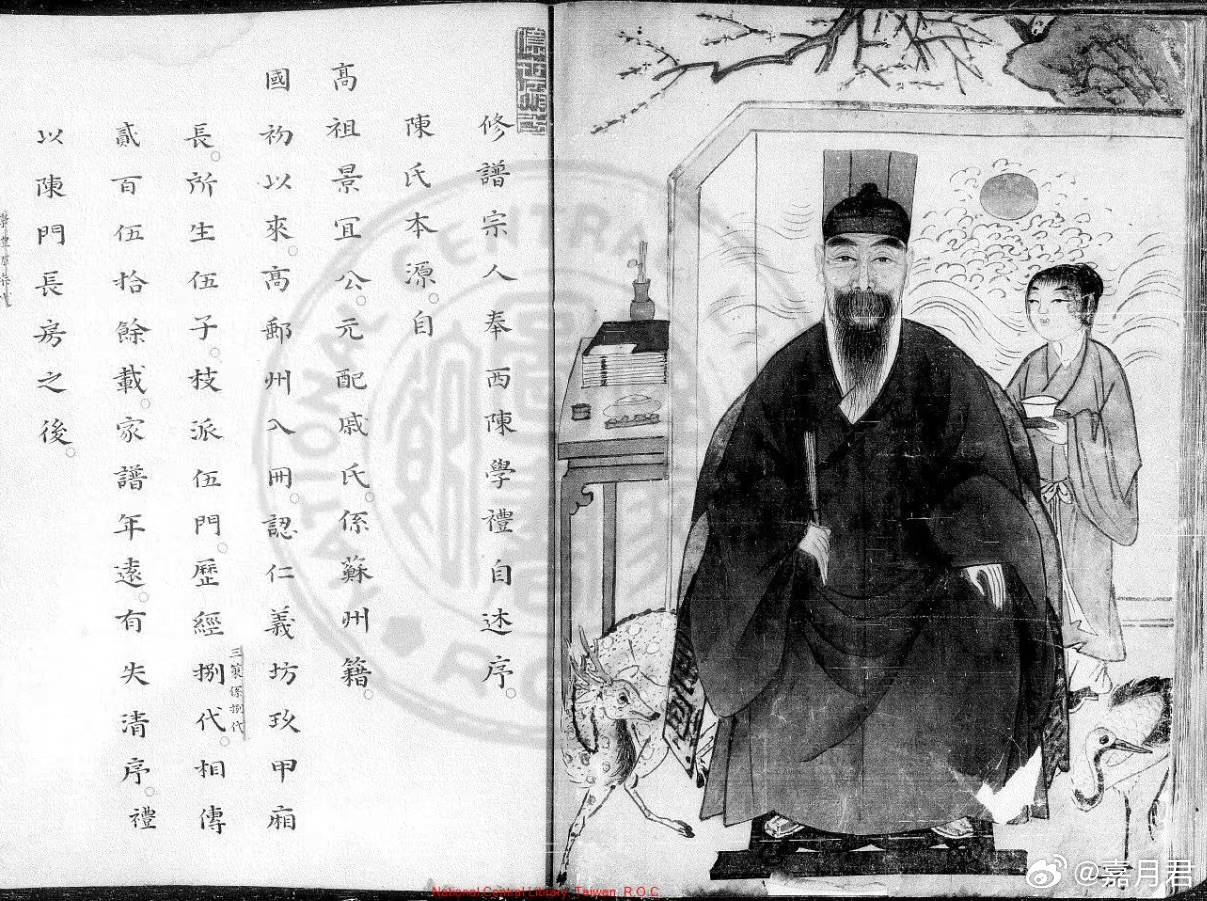 修譜宗人奉西陳學禮自述序。
陳氏本源。自
高祖景宜公。元配戚氏。係蘇州籍。
國初以來。高郵州入冊。認仁義坊玖甲廂
長。所生伍子。枝派伍門。歷經捌代。相傳
係捌代
貳百伍拾餘載。家譜年遠。有失清序。禮
以陳門長房之後。
NATIONAL CENTRAL
R.O.
National Central Library, Taiwan, R.O.C
@嘉月君